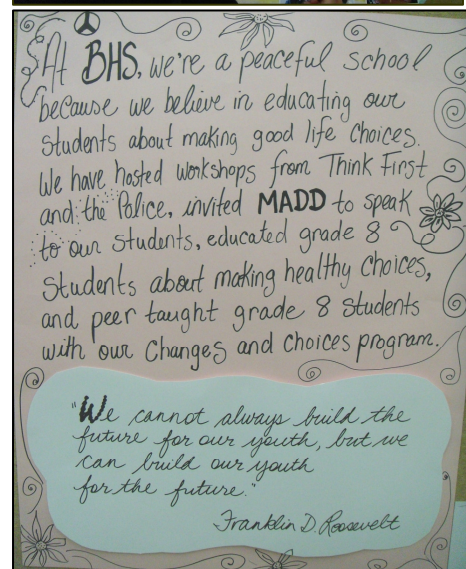 At BHS, we're a peaceful school
because we believe in educating our
students about making good life choices.
We have hosted workshops from Think First
and the Police, invited MADD to speak
to our students, educated grade 8
students about making healthy choices,
and peer taught grade 8 students
with our Changes and Choices program.
"We cannot always build the
future for our youth, but we
can build our youth
for the future."
Franklin D. Roosevelt